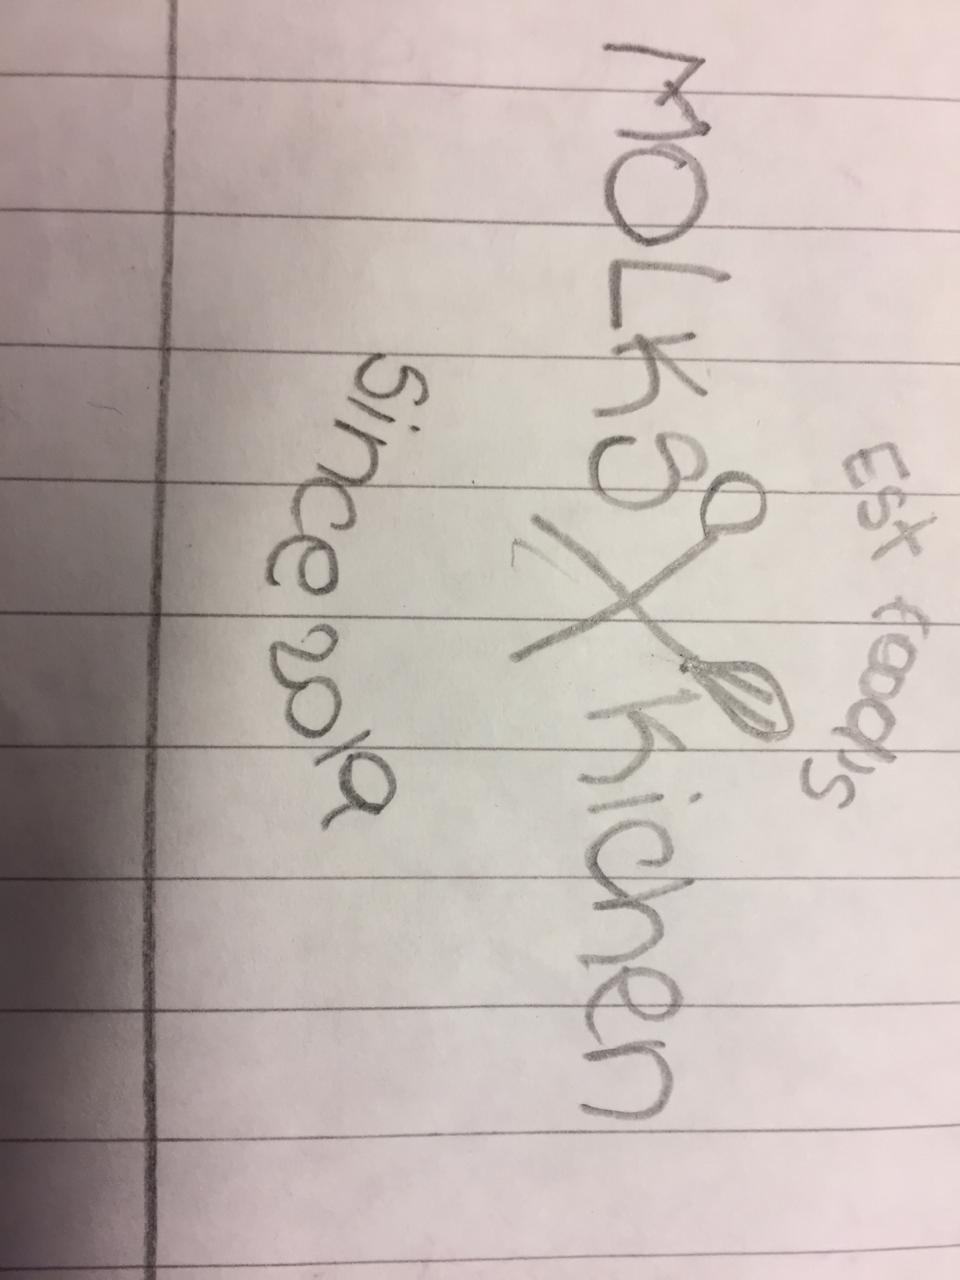 Est foods
MOLKS khichen
Since 2019